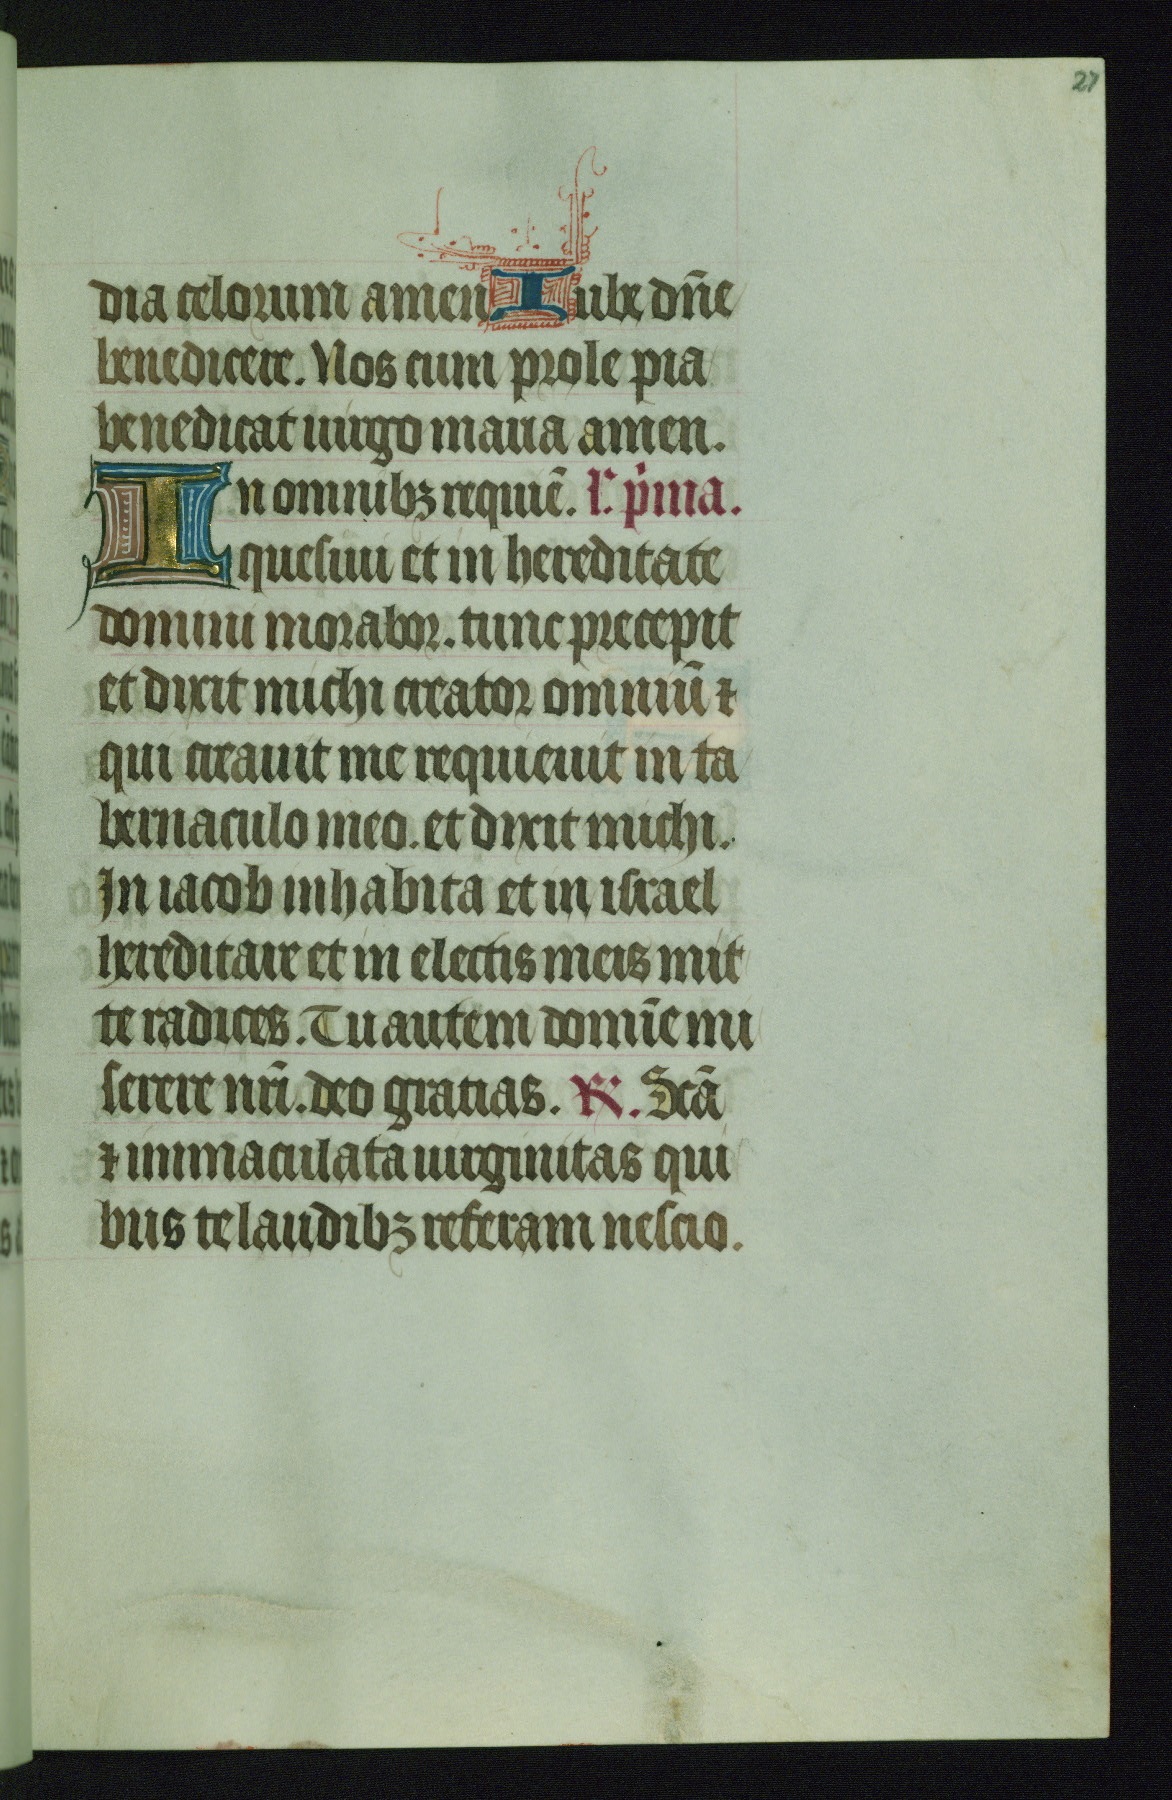 27
dia celorum amen Iube dn̄e
benedicere. Nos cum prole pia
benedicat uirgo maria amen.
In omnibꝫ requiē. l'. p'ma.
quesiui et in hereditate
domini morabor. tunc precepit
et dixit michi creator omniū ⁊
qui creauit me requieuit in ta
bernaculo meo. et dixit michi.
In iacob inhabita et in israel
hereditare et in electis meis mit
te radices. Tu autem domīe mi
serere nrī. deo gratias. ℟. Scā
⁊ immaculata uirginitas qui
bus te laudibꝫ referam nescio.